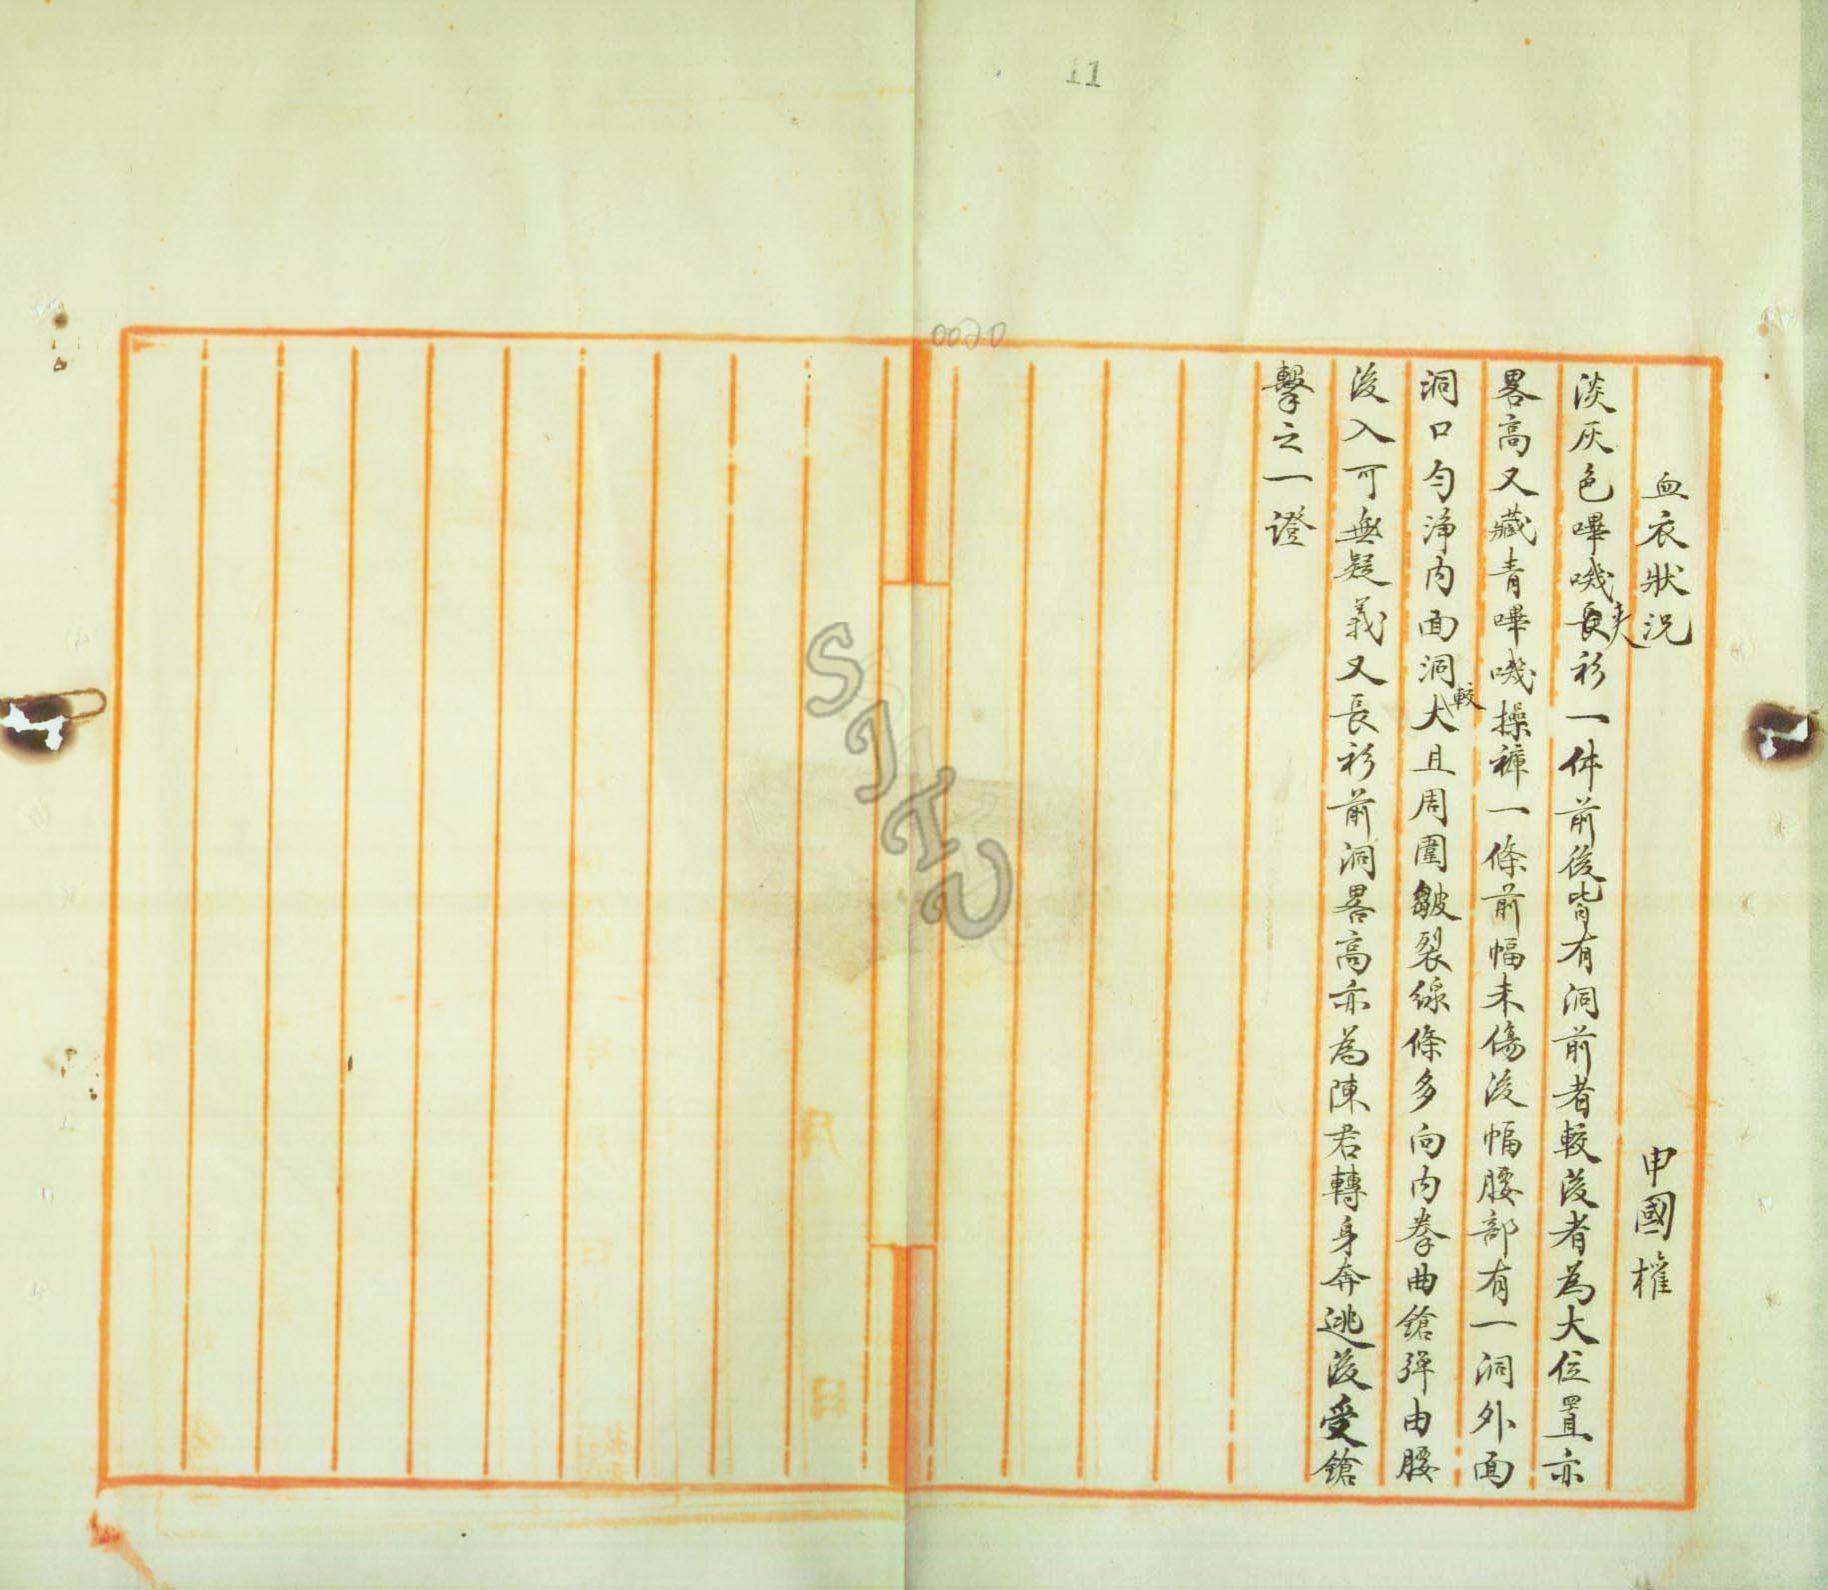 11
0020
血衣狀況　申國權
淡灰色嗶嘰長夾衫一件前後皆有洞前者較後者為大位置亦
畧高又藏青嗶嘰操褲一條前幅未傷後幅腰部有一洞外面
洞口勻淨內面洞較大且周圍皺裂線條多向內拳曲鎗彈由腰
後入可無疑義又長衫前洞畧高亦為陳君轉身奔逃後受鎗
擊之一證
SIHS